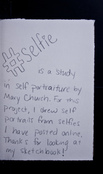 #Selfie
is a study
in self portraiture by
Mary Church. For this
project, I drew self
portraits from selfies
I have posted online.
Thanks for looking at
my sketchbook!